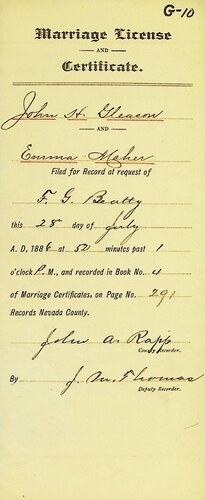 G-10
Marriage License
AND
Certificate.
John H. Gleason
AND
Emma Maher
Filed for Record at request of
F. G. Beatty
this 28 day of July
A. D. 1886 at 50 minutes past 1
o'clock P. M., and recorded in Book No. 4
of Marriage Certificates, on Page No. 291
Records Nevada County.
John A. Rapp
County Recorder.
By J. M. Thomas
Deputy Recorder.